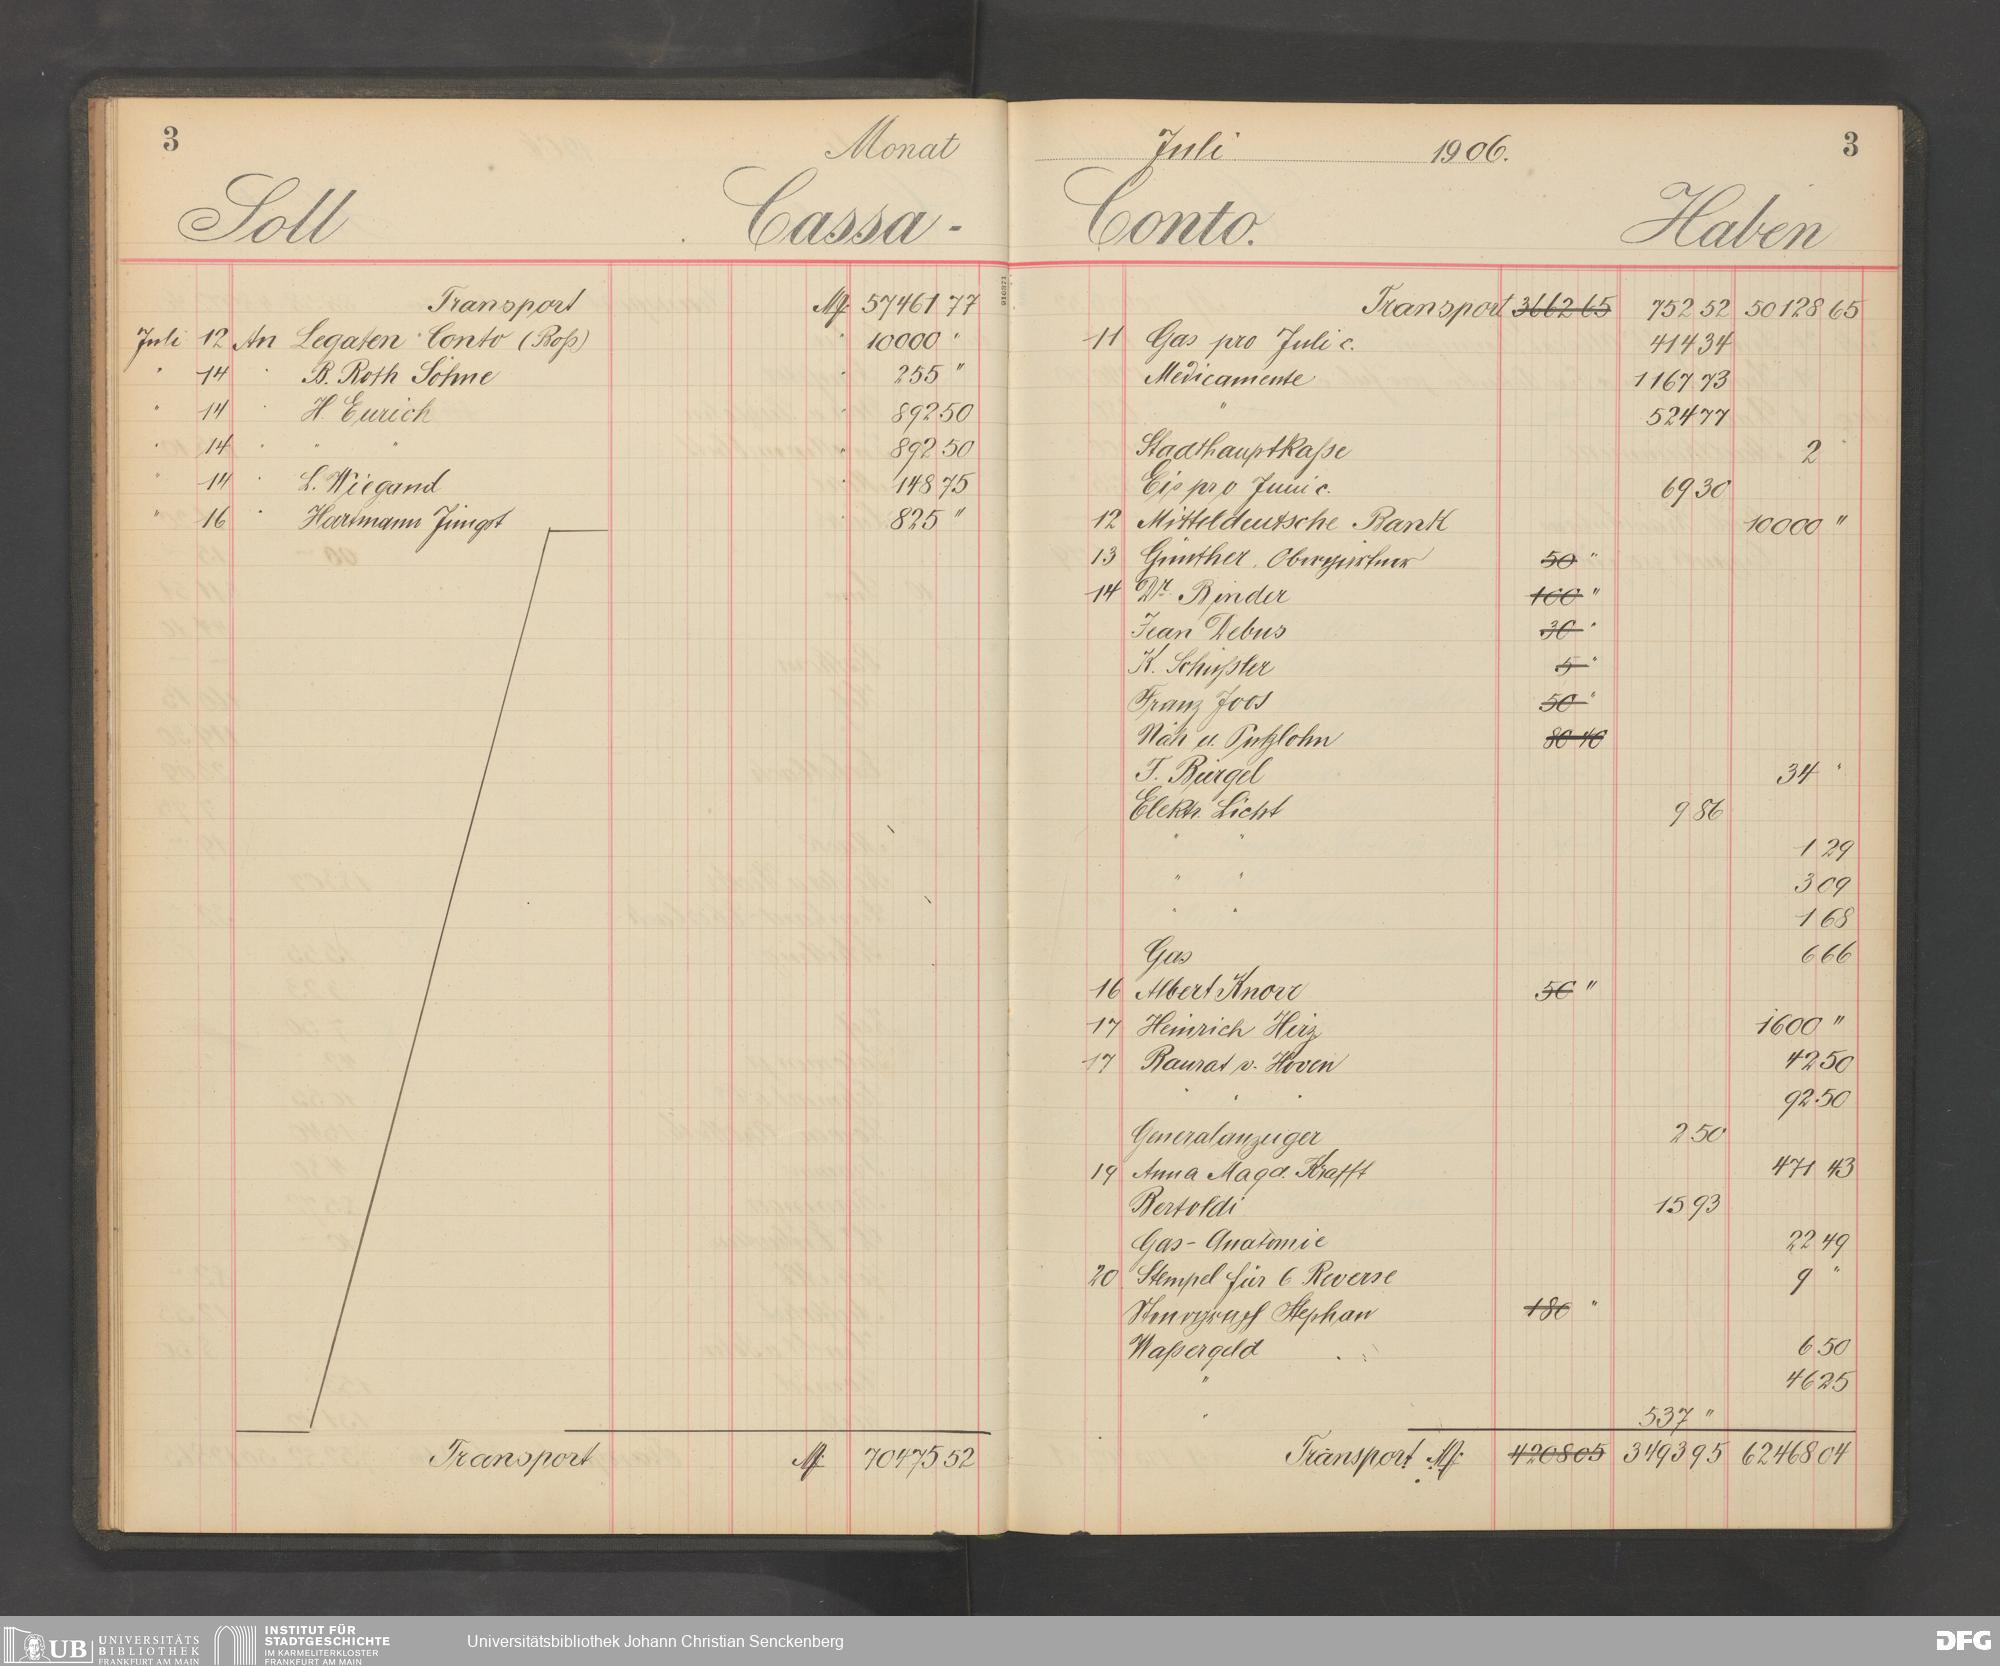 3
Monat
Soll
Cassa-
Transport M 57461 77
Juli 12 An Legaten Conto (Roß) " 10000 "
" 14 " B. Roth Söhne " 255 "
" 14 " H. Eurich " 892 50
" 14 " " " " 892 50
" 14 " L. Wiegand " 148 75
" 16 " Hartmann Jüngst " 825 "
Transport M 70475 52
Juli 1906.
3
Conto.
Haben
010821
Transport 3662 65 752 52 50128 65
11 Gas pro Juli c. 414 34
Medicamente 1167 73
" 524 77
Stadthauptkaße 2
Eis pro Juni c. 69 30
12 Mitteldeutsche Bank 10000 "
13 Günther, Obergärtner 50 "
14 Dr. Binder 100 "
Jean Debus 30 "
K. Schüßler 5 "
Franz Joos 50 "
Näh u. Putzlohn 80 40
T. Bürgel 34 "
Elektr. Licht 9 86
" " 1 29
" " 3 09
" " 1 68
Gas 6 66
16 Albert Knorr 50 "
17 Heinrich Hirz 1600 "
17 Baurat v. Hoven 42 50
" " " 92.50
Generalanzeiger 2 50
19 Anna Magd. Krafft 471 43
Bertoldi 15 93
Gas-Anatomie 22 49
20 Stempel für 6 Reverse 9 "
Stenograph Stephan 180 "
Waßergeld 6 50
" 46 25
" 537 "
Transport M 4208 05 3493 95 62468 04
UB UNIVERSITÄTS
BIBLIOTHEK
FRANKFURT AM MAIN
INSTITUT FÜR
STADTGESCHICHTE
IM KARMELITERKLOSTER
FRANKFURT AM MAIN
Universitätsbibliothek Johann Christian Senckenberg
DFG